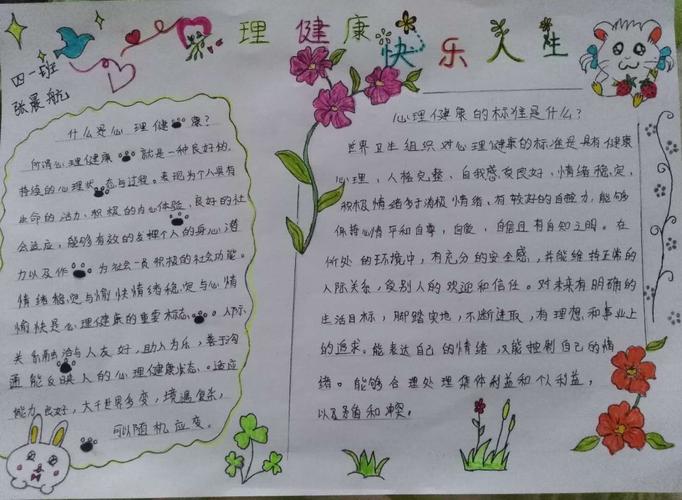 理健康快乐人生
四一班
张晨航
什么是心理健康?
何谓心理健康 就是一种良好的,
持续的心理状态与过程。表现为个人具有
生命的活力、积极的内心体验、良好的社
会适应,能够有效的支理个人的身心潜
力以及作 为社会一员积极的社会功能。
情绪稳定与愉快情绪稳定与心情
愉快是心理健康的重要标志 。人际
关系融洽与人友好,助人为乐,善于沟
通能反映人的心理健康状态。适应
能力良好,大千世界多变,境遇复杂,
可以随机应变。
心理健康的标准是什么?
世界卫生组织对心理健康的标准是具有健康
心理、人格完整、自我感友良好、情绪稳定,
积极情绪多于消极情绪、有较好的自控力,能够
保持心情平和自尊,自爱,自信且有自知之明。在
所处的环境中,有充分的安全感,并能维持正常的
人际关系,受别人的欢迎和信任。对未来有明确的
生活目标,脚踏实地,不断进取,有理想和事业上
的追求。能表达自己的情绪又能控制自己的情
绪。能够合理处理集体利益和个人利益,
以及矛盾和冲突。